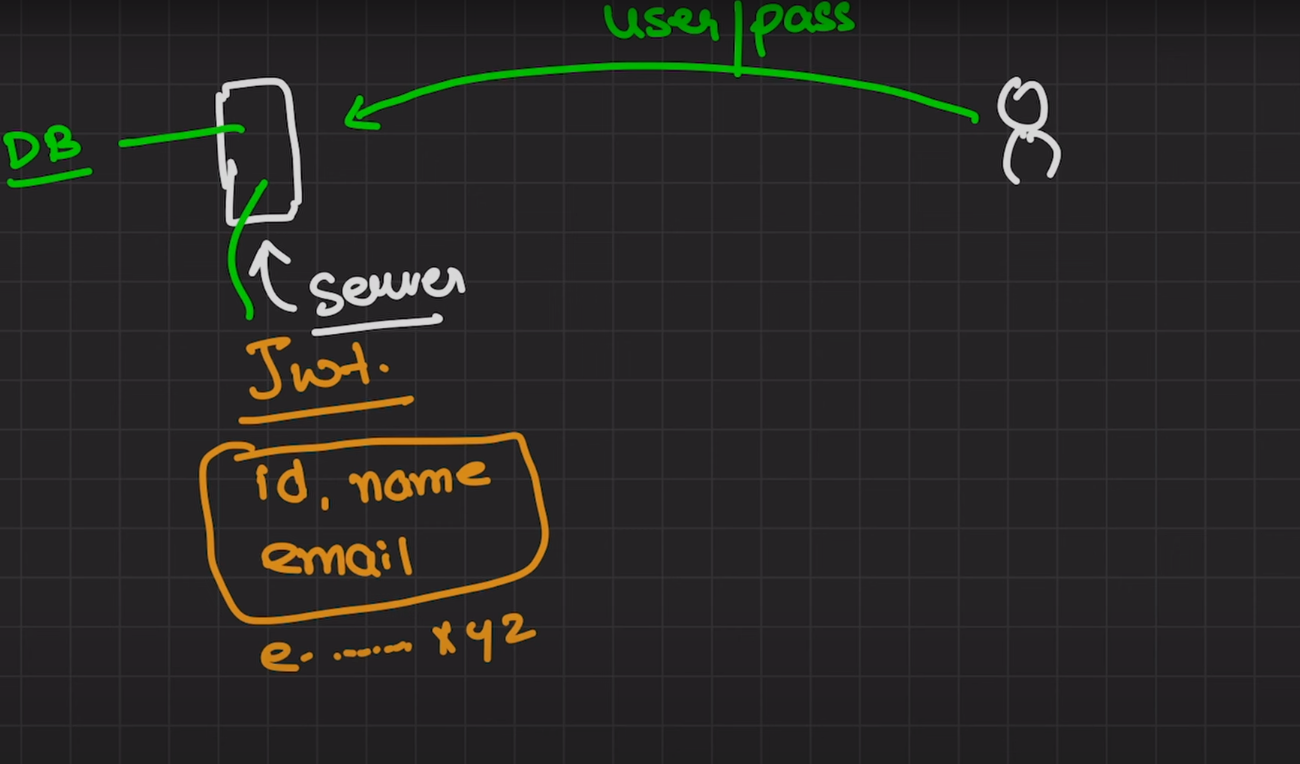 user | pass
DB
server
Jwt.
id, name
email
e. ....... xyz